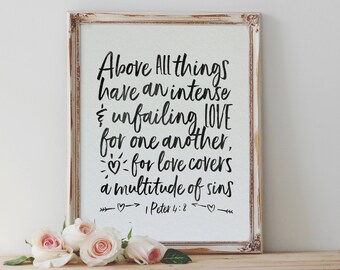 Above ALL things
have an intense
& unfailing LOVE
for one another,
for love covers
a multitude of sins
1 Peter 4:8